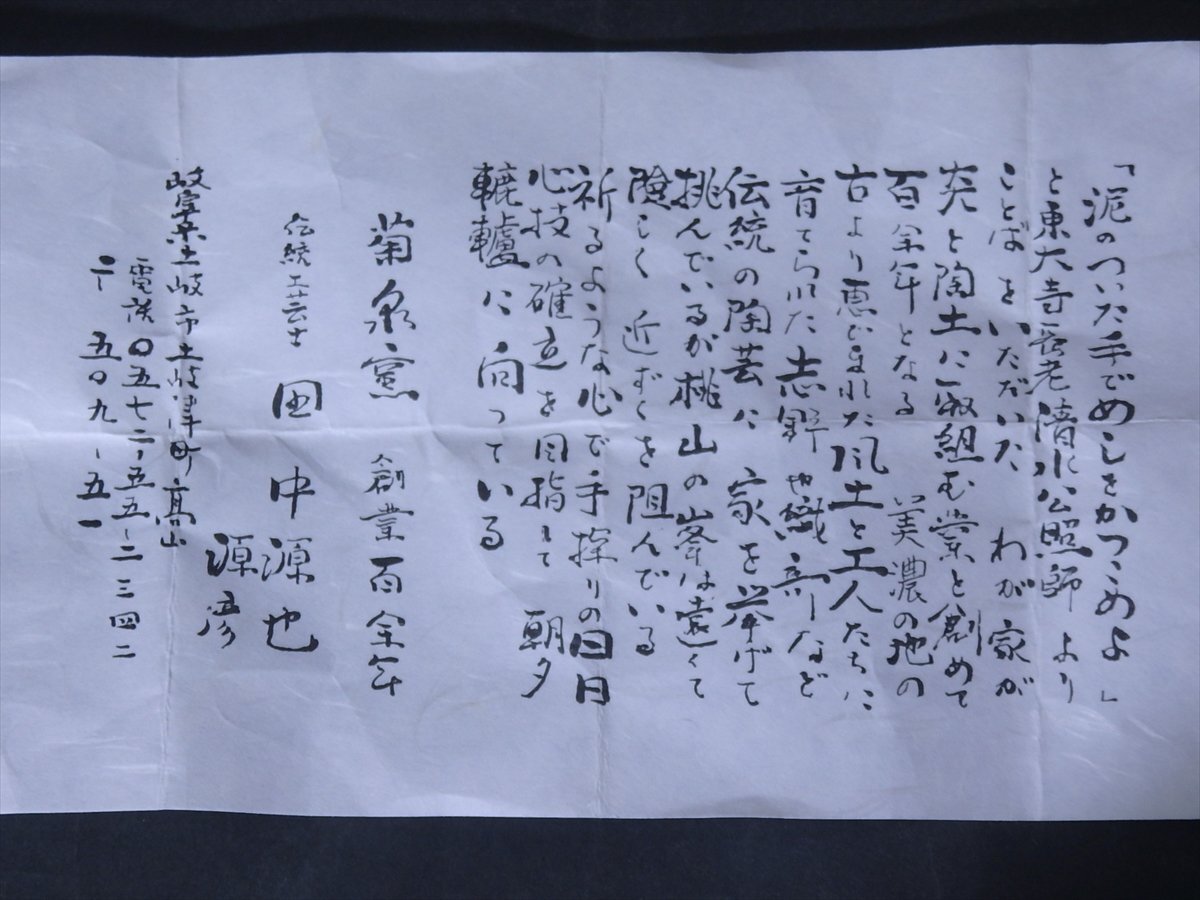 「泥のついた手でめしをかっこめよ」
と東大寺長老清水公照師より
ことばをいただいた わが家が
炎と陶土に取組む業を創めて
百余年となる 美濃の地の
古より恵まれた風土と工人たちに
育てられた志野や織部など
伝統の陶芸に 家を挙げて
挑んでいるが桃山の峯は遠くて
険しく 近ずくを阻んでいる
祈るような心で手探りの日日
心技の確立を目指して 朝夕
轆轤に向っている
菊泉窯 創業百余年
伝統工芸士 田中源也
源彦
岐阜県土岐市土岐津町高山
電話〇五七二-五五-二三四二
〒 五〇九-五一